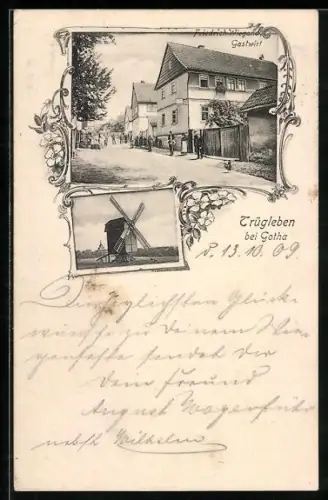 Friedrich Wiegand
Gastwirt
Trügleben
bei Gotha
d. 13.10.09.
Die herzlichsten Glück-
wünsche zu deinem Wie-
genfeste sendet dir
dein Freund
August
nebst Wilhelm